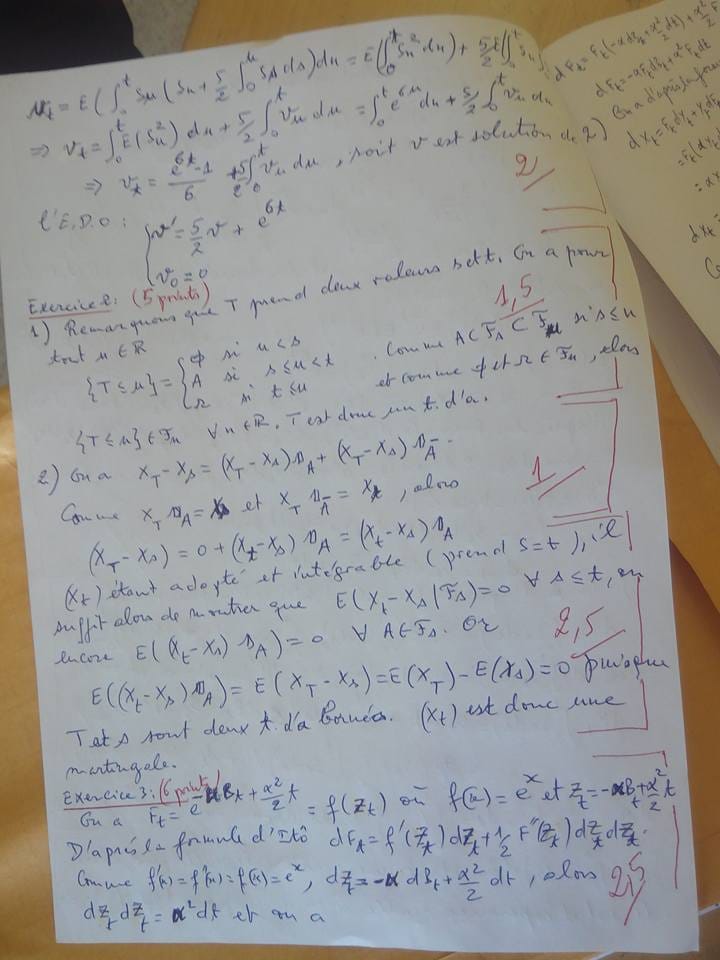 v_t = E(∫_0^t S_u (S_u + 5/2 ∫_0^u S_s ds) du = E(∫_0^t S_u^2 du) + 5/2 E(∫_0^t S_u
⇒ v_t = ∫_0^t E(S_u^2) du + 5/2 ∫_0^t v_u du = ∫_0^t e^{6u} du + 5/2 ∫_0^t v_u du
⇒ v_t = (e^{6t} - 1)/6 + 5/2 ∫_0^t v_u du, soit v est solution de 2)
2/
l'E.D.O : { v' = 5/2 v + e^{6t}
v_0 = 0
Exercice 2: (5 points)
1) Remarquons que T prend deux valeurs s et t. On a pour
1,5
tout u ∈ ℝ
{T ≤ u} = { ϕ si u < s
A si s ≤ u < t . Comme A ⊂ F_s ⊂ F_u si s ≤ u
Ω si t ≤ u et comme ϕ et Ω ∈ F_u, alors
{T ≤ u} ∈ F_u ∀ u ∈ ℝ. T est donc un t. d'a.
2) On a X_T - X_s = (X_T - X_s) 1_A + (X_T - X_s) 1_Ā.
1/
Comme X_T 1_A = X_s et X_T 1_Ā = X_t, alors
(X_T - X_s) = 0 + (X_t - X_s) 1_A = (X_t - X_s) 1_A
(X_t) étant adapté et intégrable (prend s = t), il
suffit alors de montrer que E(X_t - X_s | F_s) = 0 ∀ s ≤ t, ou
encore E((X_t - X_s) 1_A) = 0 ∀ A ∈ F_s. Or
2,5
E((X_t - X_s) 1_A) = E(X_T - X_s) = E(X_T) - E(X_s) = 0 puisque
T et s sont deux t. d'a bornés. (X_t) est donc une
martingale.
Exercice 3: (6 points)
On a F_t = e^{-αB_t + α²/2 t} = f(Z_t) où f(x) = e^x et Z_t = -αB_t + α²/2 t
D'après la formule d'Itô dF_t = f'(Z_t) dZ_t + 1/2 F''(Z_t) dZ_t dZ_t.
Comme f'(x) = f''(x) = f(x) = e^x, dZ_t = -α dB_t + α²/2 dt, alors
2,5
dZ_t dZ_t = α² dt et on a
dF_t = F_t(-α dB_t + α²/2 dt) + α²/2 F
dF_t = -αF_t dB_t + α² F_t dt
On a d'après la form
dY_t = F_t dX_t + X_t dF_t